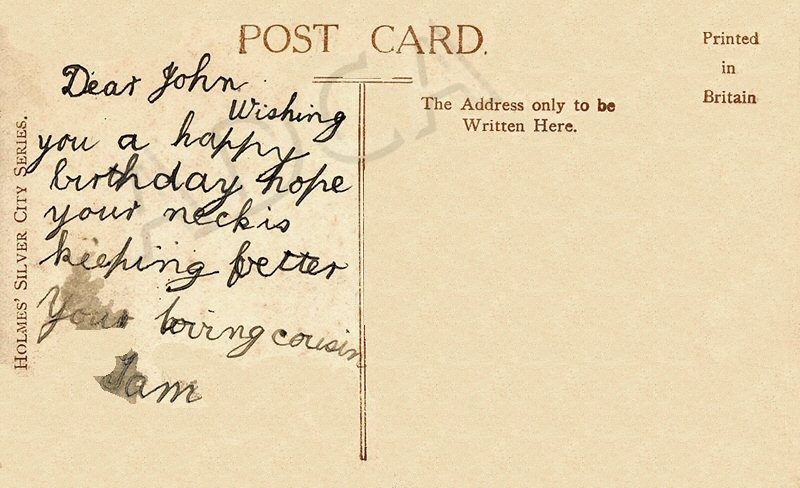 POST CARD.
Printed
in
Britain
The Address only to be
Written Here.
HOLMES' SILVER CITY SERIES.
Dear John
Wishing
you a happy
birthday hope
your neck is
keeping better
Your loving cousin
Sam
ADCA